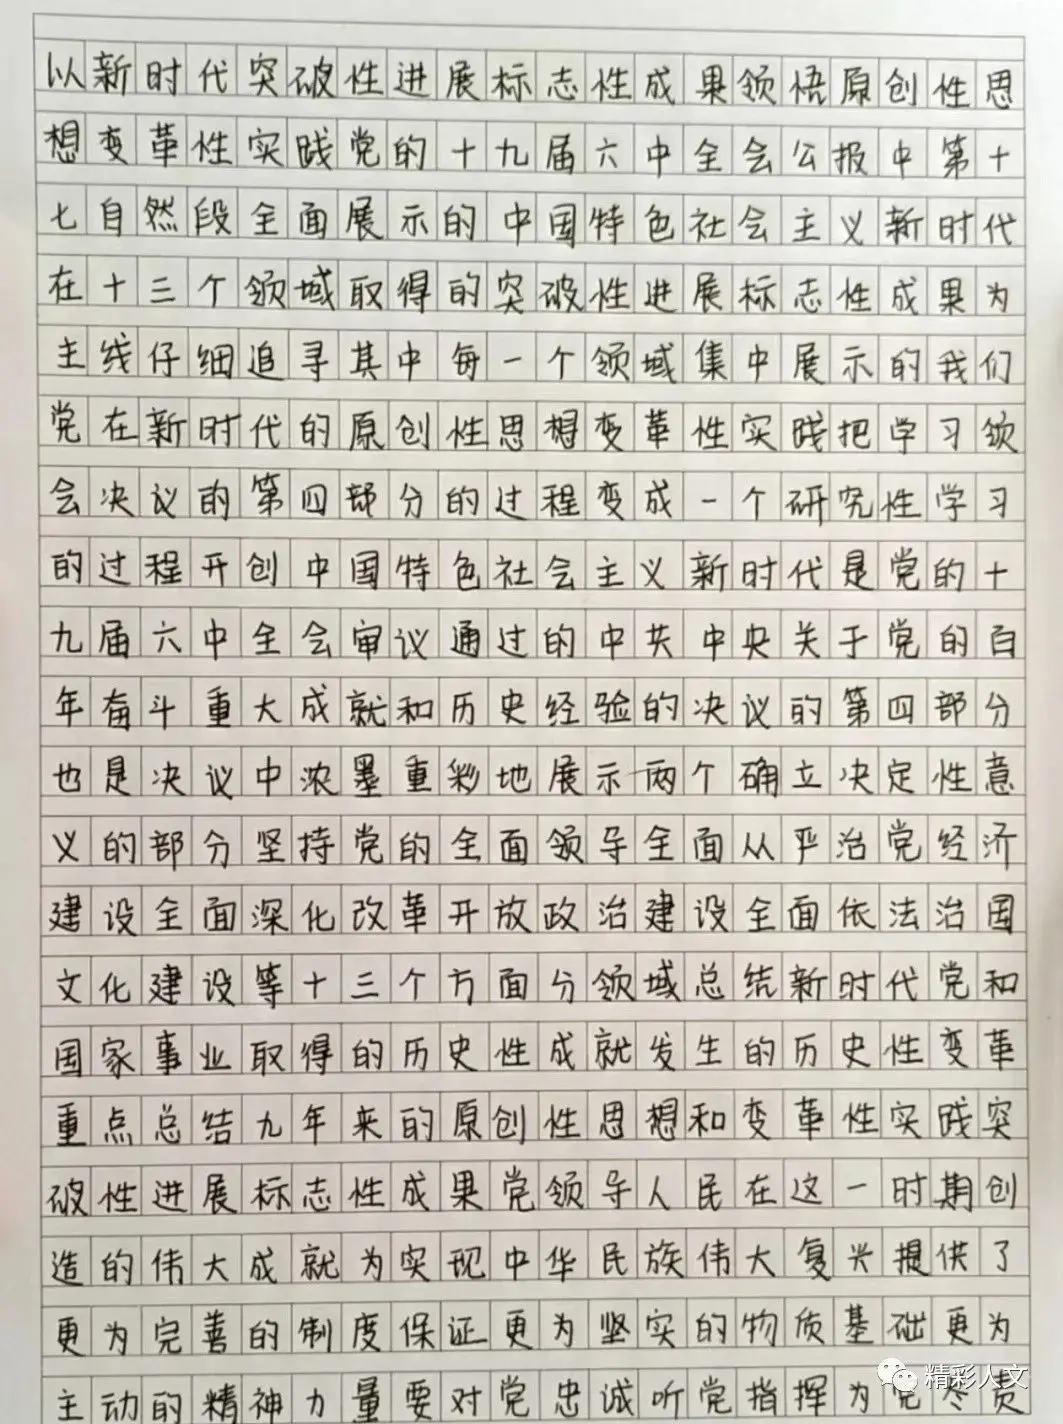 以新时代突破性进展标志性成果领悟原创性思
想变革性实践党的十九届六中全会公报中第十
七自然段全面展示的中国特色社会主义新时代
在十三个领域取得的突破性进展标志性成果为
主线仔细追寻其中每一个领域集中展示的我们
党在新时代的原创性思想变革性实践把学习领
会决议的第四部分的过程变成一个研究性学习
的过程开创中国特色社会主义新时代是党的十
九届六中全会审议通过的中共中央关于党的百
年奋斗重大成就和历史经验的决议的第四部分
也是决议中浓墨重彩地展示两个确立决定性意
义的部分坚持党的全面领导全面从严治党经济
建设全面深化改革开放政治建设全面依法治国
文化建设等十三个方面分领域总结新时代党和
国家事业取得的历史性成就发生的历史性变革
重点总结九年来的原创性思想和变革性实践突
破性进展标志性成果党领导人民在这一时期创
造的伟大成就为实现中华民族伟大复兴提供了
更为完善的制度保证更为坚实的物质基础更为
主动的精神力量要对党忠诚听党指挥为党尽责
精彩人文